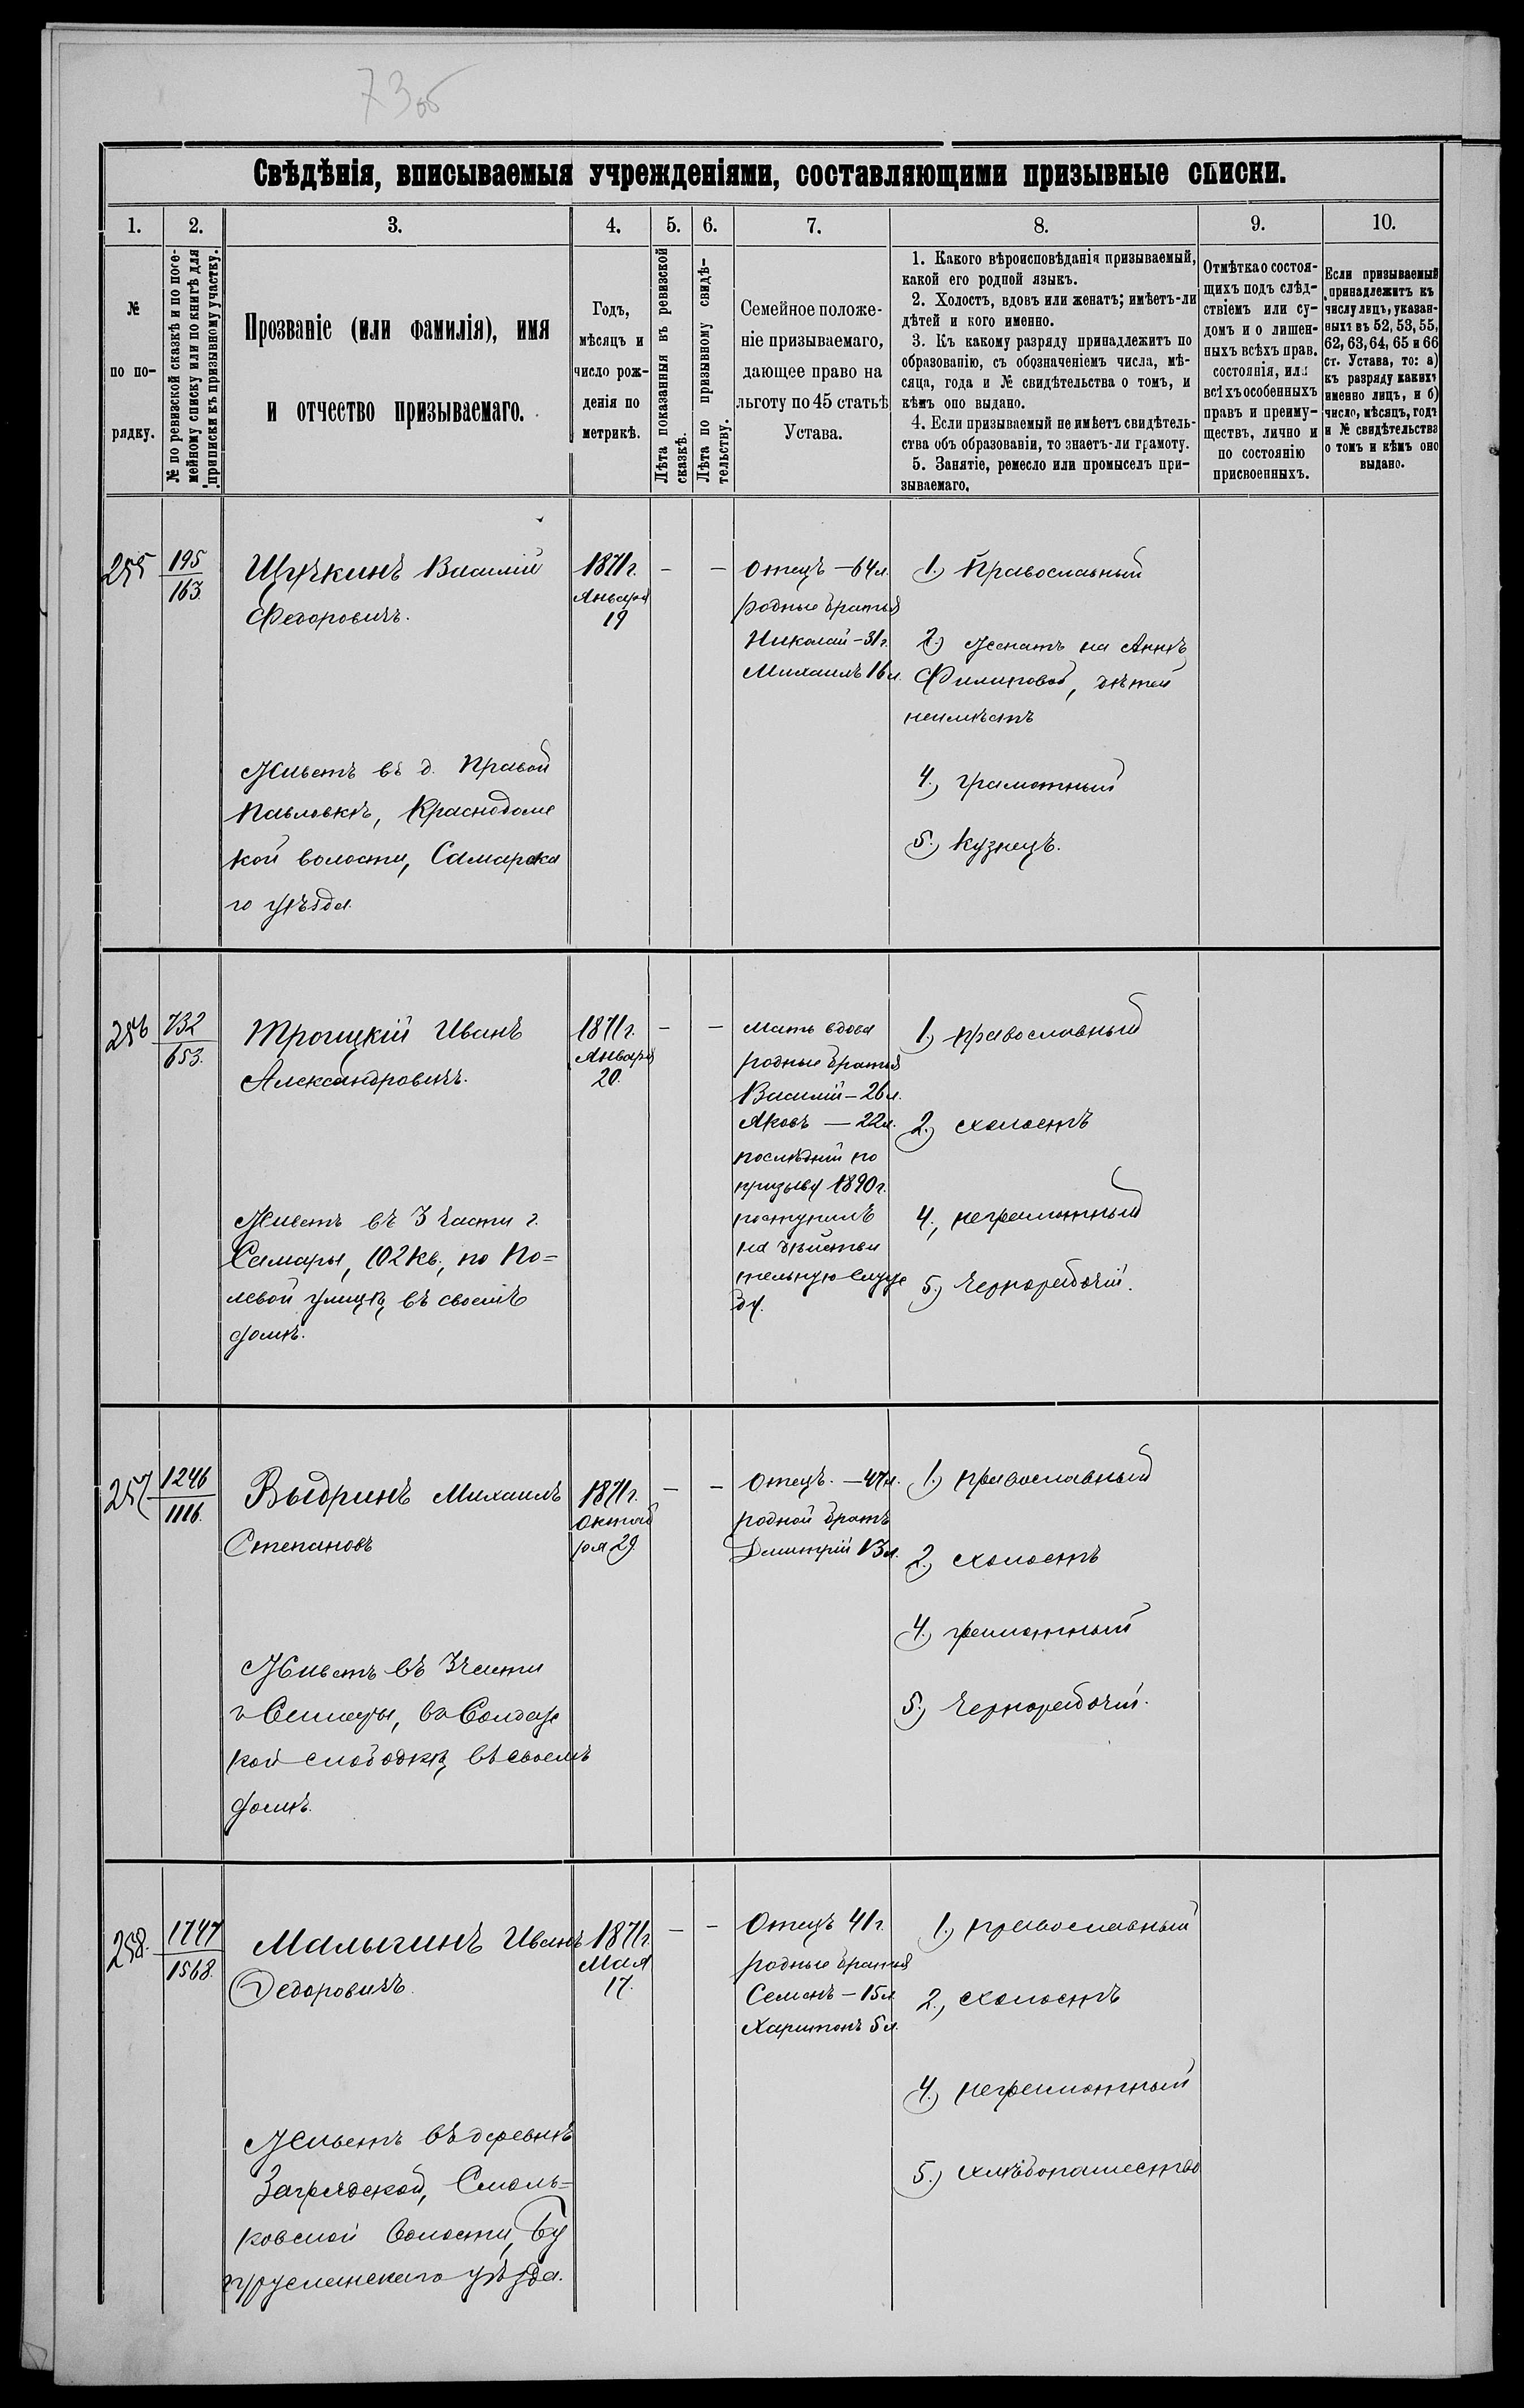 73 об
Свѣдѣнія, вписываемыя учрежденіями, составляющими призывные списки.
1.
2.
3.
4.
5.
6.
7.
8.
9.
10.
№
по по-
рядку.
№ по ревизской сказкѣ и по посе-
мейному списку или по книгѣ для
приписки къ призывному участку.
Прозваніе (или фамилія), имя
и отчество призываемаго.
Годъ,
мѣсяцъ и
число рож-
денія по
метрикѣ.
Лѣта показанныя въ ревизской
сказкѣ.
Лѣта по призывному свидѣ-
тельству.
Семейное положе-
ніе призываемаго,
дающее право на
льготу по 45 статьѣ
Устава.
1. Какого вѣроисповѣданія призываемый,
какой его родной языкъ.
2. Холостъ, вдовъ или женатъ; имѣетъ-ли
дѣтей и кого именно.
3. Къ какому разряду принадлежитъ по
образованію, съ обозначеніемъ числа, мѣ-
сяца, года и № свидѣтельства о томъ, и
кѣмъ оно выдано.
4. Если призываемый не имѣетъ свидѣтель-
ства объ образованіи, то знаетъ-ли грамоту.
5. Занятіе, ремесло или промыселъ при-
зываемаго.
Отмѣтка о состоя-
щихъ подъ слѣд-
ствіемъ или су-
домъ и о лишен-
ныхъ всѣхъ прав.
состоянія, или
всѣхъ особенныхъ
правъ и преиму-
ществъ, лично и
по состоянію
присвоенныхъ.
Если призываемый
принадлежитъ къ
числу лицъ, указан-
ныхъ въ 52, 53, 55,
62, 63, 64, 65 и 66
ст. Устава, то: а)
къ разряду какихъ
именно лицъ, и б)
число, мѣсяцъ, годъ
и № свидѣтельства
о томъ и кѣмъ оно
выдано.
255
195
163.
Щучкинъ Василій
Федоровичъ.
Живетъ въ д. Правой
Павловкѣ, Краснодом
кой волости, Самарска
го уѣзда.
1871 г.
Января
19
–
–
Отецъ – 64 л.
родные братья
Николай – 31 г.
Михаилъ 16 л.
1.) Православный
2.) Женатъ на Аннѣ
Филиповой, дѣтей
неимѣетъ
4., грамотный
5., Кузнецъ.
256
732
653.
Троицкій Иванъ
Александровичъ.
Живетъ въ 3 части г.
Самары, 102 кв., по По=
левой улицѣ, въ своемъ
домѣ.
1871 г.
Января
20.
–
–
Мать вдова
родные братья
Василій – 26 л.
Яковъ – 22 л.
послѣдній по
призыву 1890 г.
поступилъ
на дѣйстви
тельную служ
бу.
1.) православный
2.) холостъ
4., неграмотный
5.) Чернорабочій.
257
1246
1116.
Выдринъ Михаилъ
Степановъ
Живетъ въ 3 части
г Самары, въ Солдатс
кой слободкѣ, въ своемъ
домѣ.
1871 г.
Октяб
ря 29
–
–
Отецъ. – 47 л.
родной братъ
Дмитрій 13 л.
1.) православный
2.) холостъ
4.) грамотный
5.) Чернорабочій.
258.
1747
1568.
Малыгинъ Иванъ
Федоровичъ.
Живетъ въ деревнѣ
Загрядской, Смоль=
ковской волости, Бу
гурусланскаго уѣзда.
1871 г.
Мая
17.
–
–
Отецъ 41 г.
родные братья
Семенъ – 15 л
Харитонъ 5 л.
1.) православный
2., холостъ
4.) неграмотный
5.) хлѣбопашество